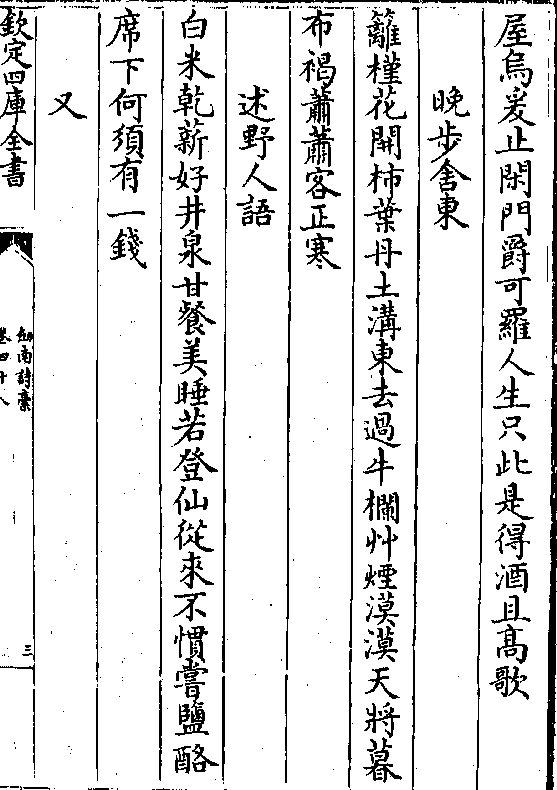 屋烏爰止閑門爵可羅人生只此是得酒且髙歌
晚步舍東
籬槿花開柿葉丹土溝東去過牛欄艸煙漠漠天將暮
布褐蕭蕭客正寒
述野人語
白米乾薪好井泉甘餐美睡若登仙從來不慣嘗鹽酪
席下何須有一錢
又
欽定四庫全書
劍南詩稾
卷四十八
三